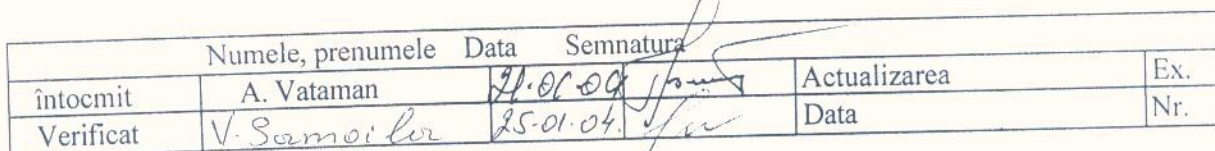 Numele, prenumele Data Semnatura
întocmit A. Vataman Actualizarea Ex.
Verificat V. Samoilov 25.01.04. Data Nr.